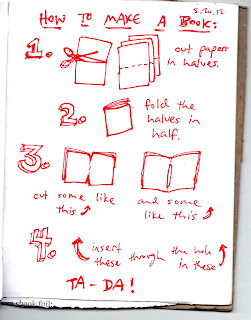 5.20.12
HOW TO MAKE A BOOK:
1.
cut papers
in halves.
2.
fold the
halves in
half.
3.
cut some like
this
and some
like this
4.
insert
these through the hole
in these
TA-DA!